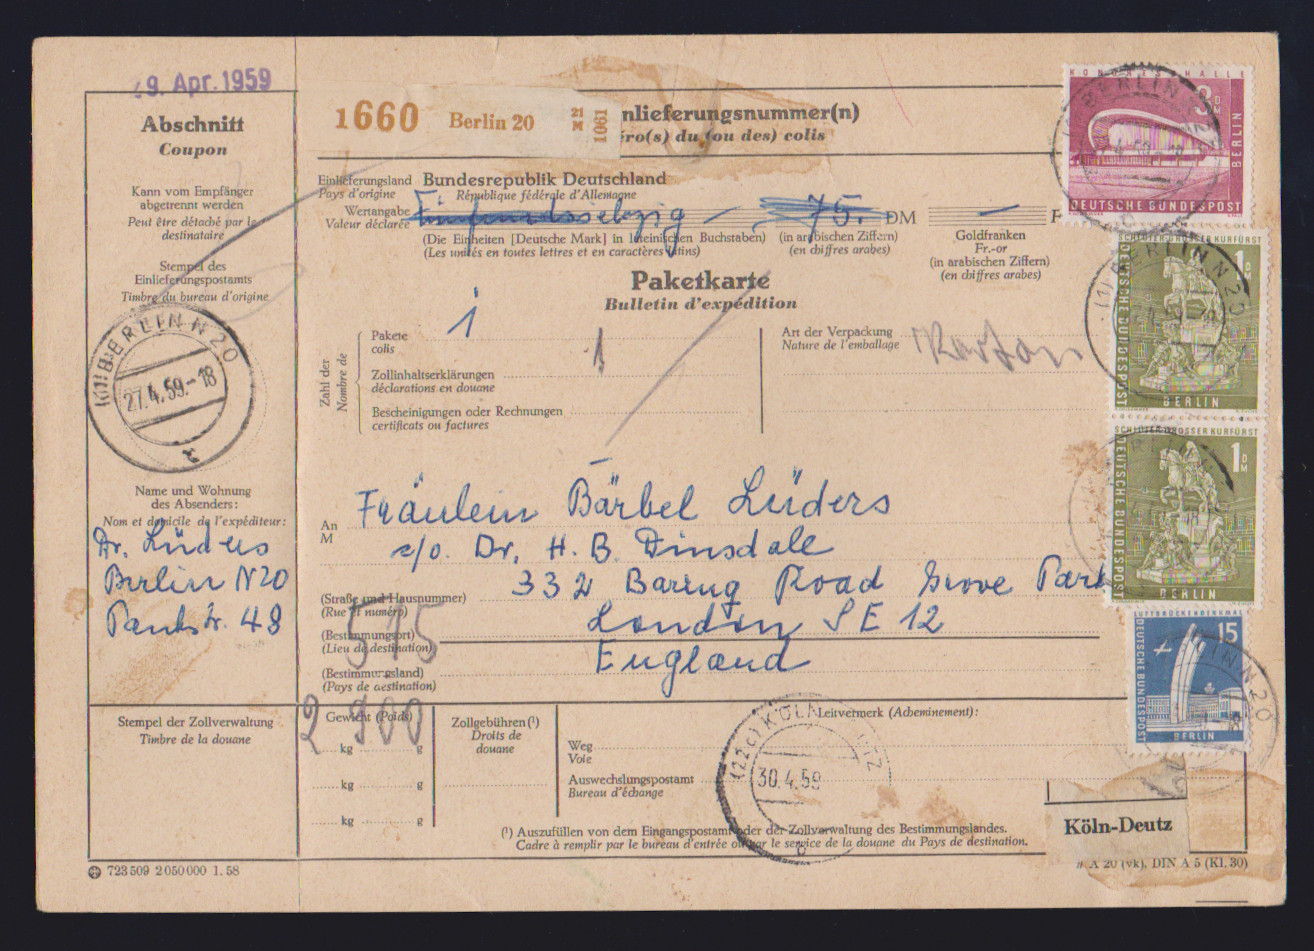 29. Apr. 1959
Abschnitt
Coupon
Kann vom Empfänger
abgetrennt werden
Peut être détaché par le
destinataire
Stempel des
Einlieferungspostamts
Timbre du bureau d'origine
(1) BERLIN N 20
27.4.59.-18
c
Name und Wohnung
des Absenders:
Nom et domicile de l'expéditeur:
Dr. Lüders
Berlin N 20
Pankstr. 48
Stempel der Zollverwaltung
Timbre de la douane
723 509 2 050 000 1. 58
1660 Berlin 20
nlieferungsnummer(n)
éro(s) du (ou des) colis
Einlieferungsland Bundesrepublik Deutschland
Pays d'origine République fédérale d'Allemagne
Wertangabe
Valeur déclarée
75. DM
(Die Einheiten [Deutsche Mark] in lateinischen Buchstaben)
(Les unités en toutes lettres et en caractères latins)
(in arabischen Ziffern)
(en chiffres arabes)
Goldfranken
Fr.-or
(in arabischen Ziffern)
(en chiffres arabes)
Paketkarte
Bulletin d'expédition
Zahl der
Nombre de
Pakete 1
colis
Zollinhaltserklärungen 1
déclarations en douane
Bescheinigungen oder Rechnungen
certificats ou factures
Art der Verpackung
Nature de l'emballage
Karton
An
M
Fräulein Bärbel Lüders
c/o. Dr. H. B. Dinsdale
332 Baring Road Grove Park
London SE 12
England
(Straße und Hausnummer)
(Rue et numéro)
(Bestimmungsort)
(Lieu de destination)
(Bestimmungsland)
(Pays de destination)
515
Gewicht (Poids)
2 900
kg g
kg g
kg g
Zollgebühren (¹)
Droits de
douane
Leitvermerk (Acheminement):
Weg
Voie
Auswechslungspostamt
Bureau d'échange
(22c) KÖLN
30.4.59
(¹) Auszufüllen von dem Eingangspostamt oder der Zollverwaltung des Bestimmungslandes.
Cadre à remplir par le bureau d'entrée ou par le service de la douane du Pays de destination.
Köln-Deutz
A 20 (vk), DIN A 5 (Kl. 30)
KONGRESSHALLE
3 DM
BERLIN
DEUTSCHE BUNDESPOST
BERLIN N 20
SCHLÜTER: GROSSER KURFÜRST
1 DM
DEUTSCHE BUNDESPOST
BERLIN
(1) BERLIN N 20
SCHLÜTER: GROSSER KURFÜRST
1 DM
DEUTSCHE BUNDESPOST
BERLIN
LUFTBRÜCKENDENKMAL
15
DEUTSCHE BUNDESPOST
BERLIN
LIN N 20